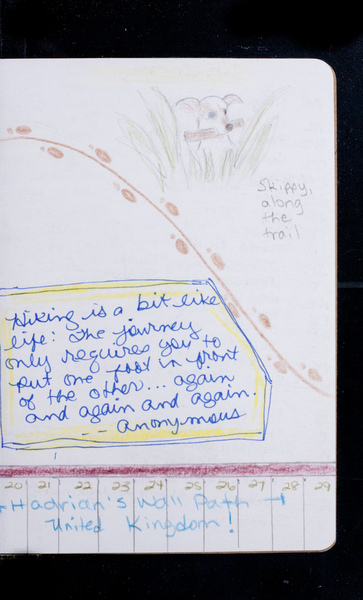 Skippy,
along
the
trail
Hiking is a bit like
life: The journey
only requires you to
put one foot in front
of the other... again
and again and again.
- anonymous
20 21 22 23 24 25 26 27 28 29
Hadrian's Wall Path →
United Kingdom!